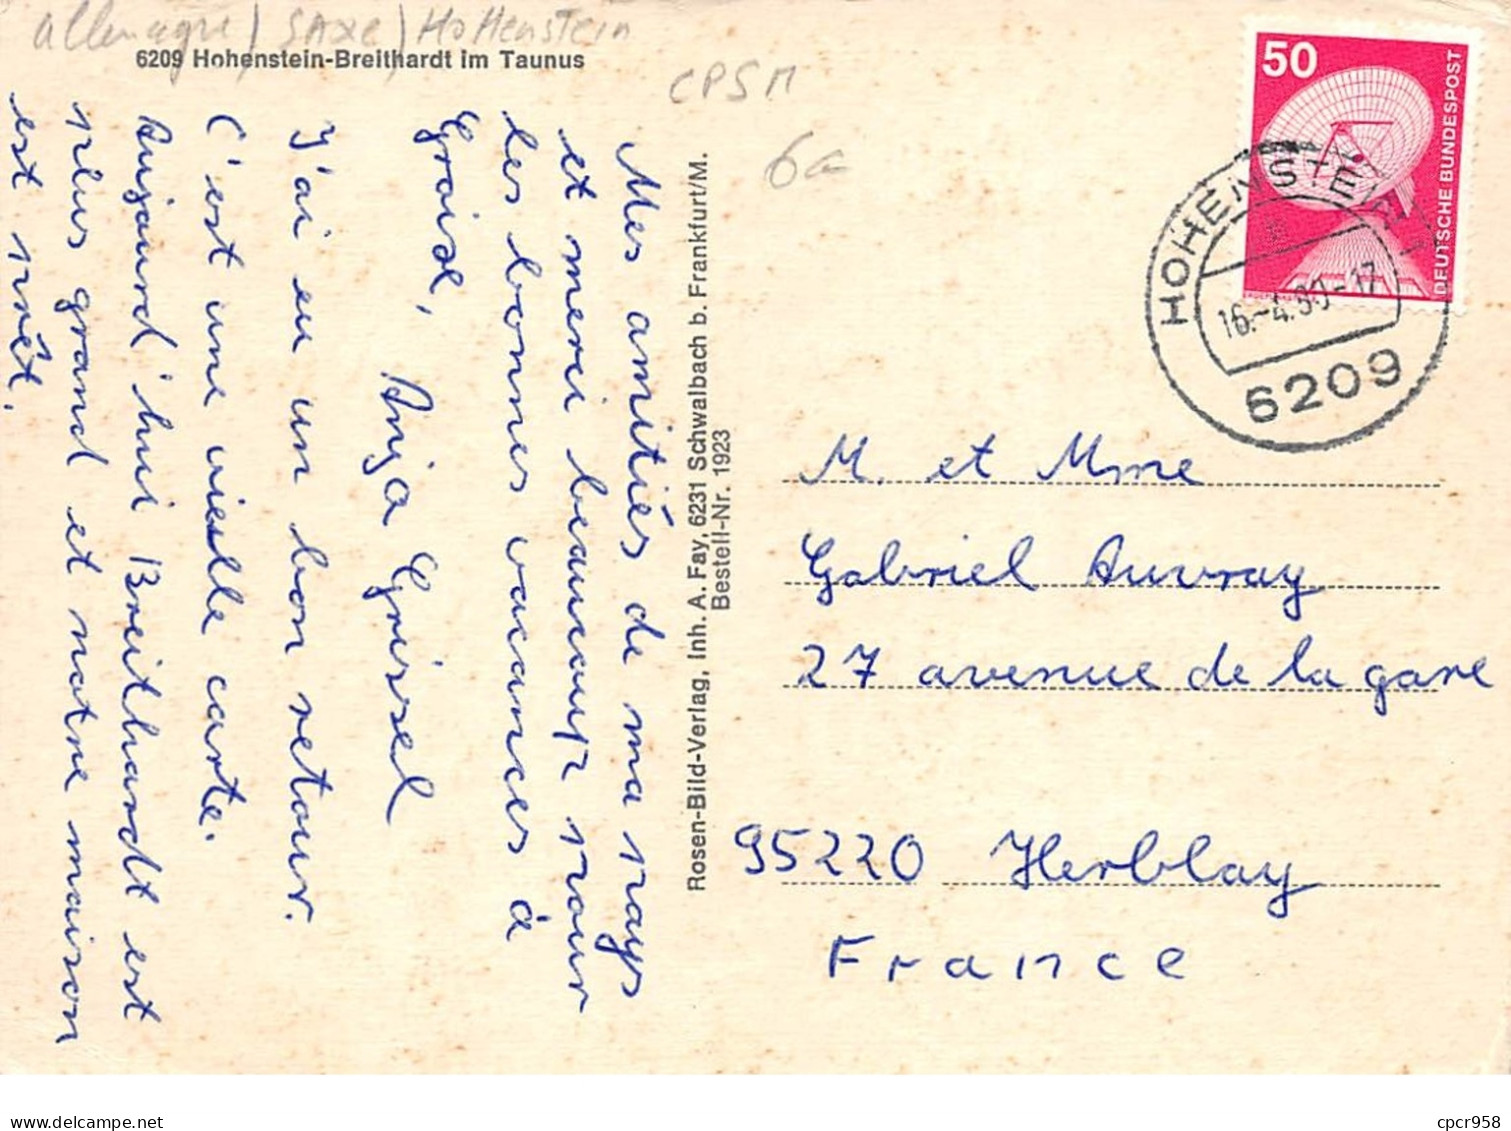 allemagne / SAXE / Hohenstein
6209 Hohenstein-Breithardt im Taunus
CPSM
6a
50
DEUTSCHE BUNDESPOST
HOHENSTEIN 1
16.-4.80-17
6209
Mes amitiés de ma pays
et merci beaucoup pour
les bonnes vacances à
Groix,
Anja Grissel
J'ai eu un bon retour.
C'est une vieille carte.
Aujourd'hui Breithardt est
plus grand et notre maison
est prêt.
Rosen-Bild-Verlag, Inh. A. Fay, 6231 Schwalbach b. Frankfurt/M.
Bestell-Nr. 1923
M. et Mme
Gabriel Auvray
27 avenue de la gare
95220 Herblay
France
cpcr958